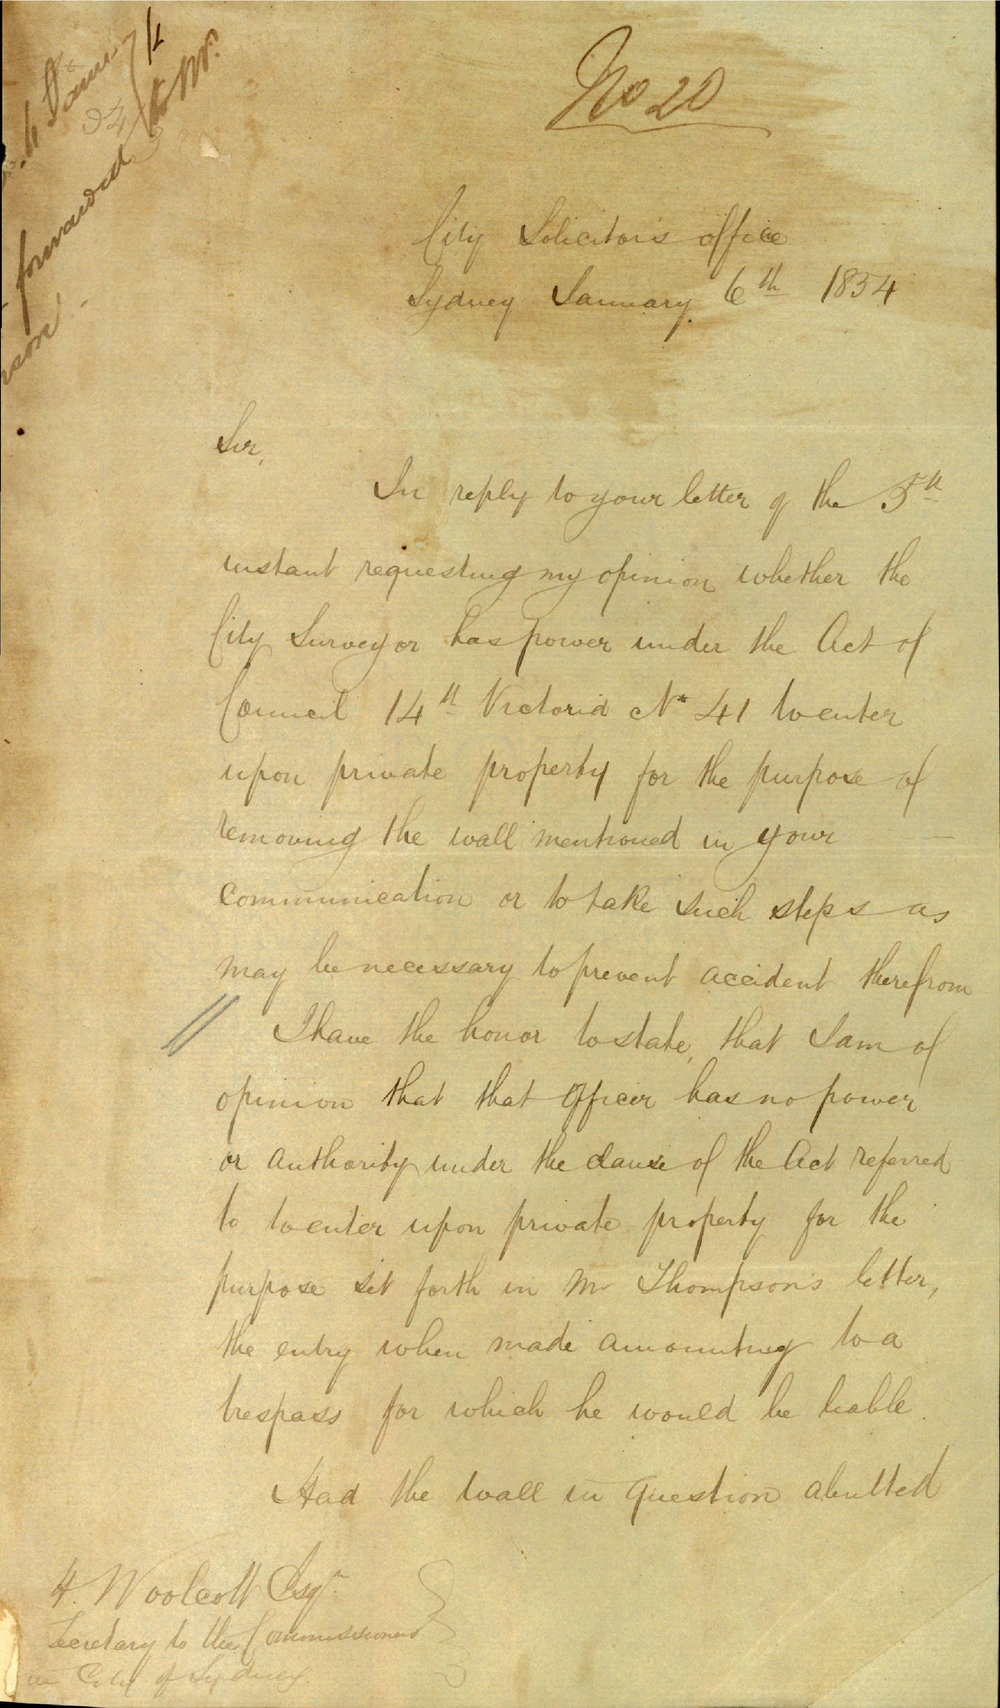 No 20
6 Janry
54
forwarded to Mr.
City Solicitor's office
Sydney January 6th 1854
Sir,
In reply to your letter of the 5th
instant requesting my opinion whether the
City Surveyor has power under the Act of
Council 14th Victoria No 41 to enter
upon private property for the purpose of
removing the wall mentioned in your
communication or to take such steps as
may be necessary to prevent accident therefrom
I have the honor to state, that I am of
opinion that that officer has no power
or authority under the clause of the Act referred
to to enter upon private property for the
purpose set forth in Mr Thompson's letter,
the entry when made amounting to a
trespass for which he would be liable.
Had the wall in question abutted
H. Woolcott Esqr
Secretary to the Commissioners
City of Sydney